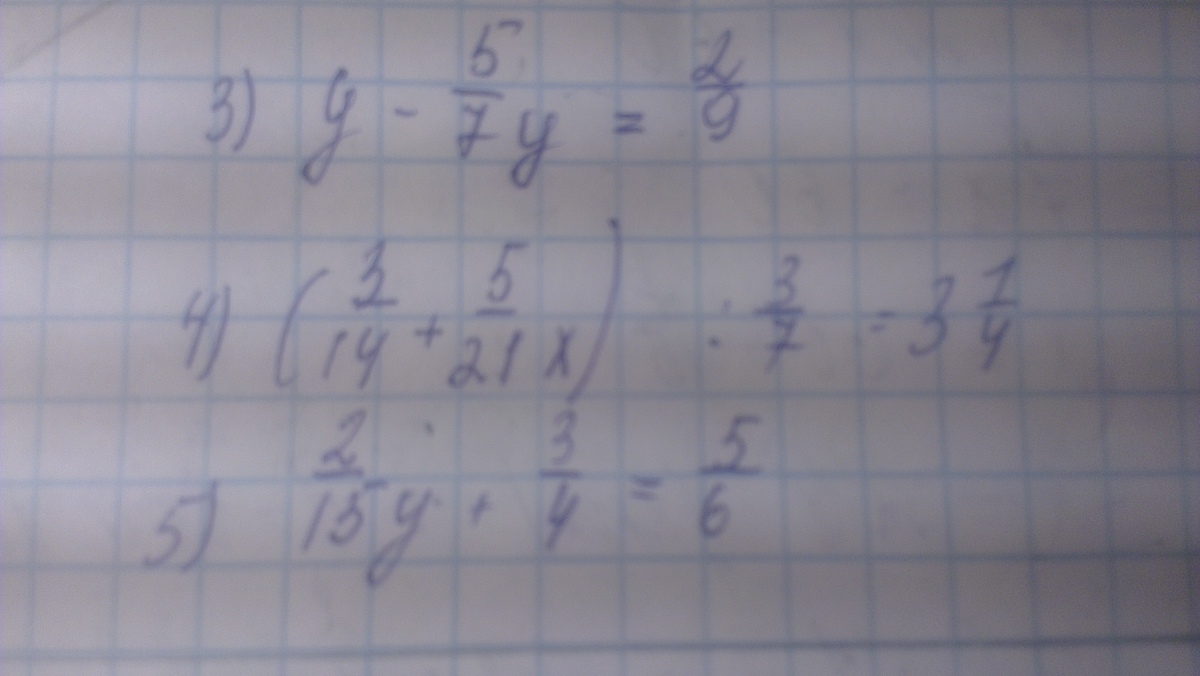 3) y - 5/7 y = 2/9
4) (3/14 + 5/21 x) : 3/7 = 3 1/4
5) 2/15 y + 3/4 = 5/6